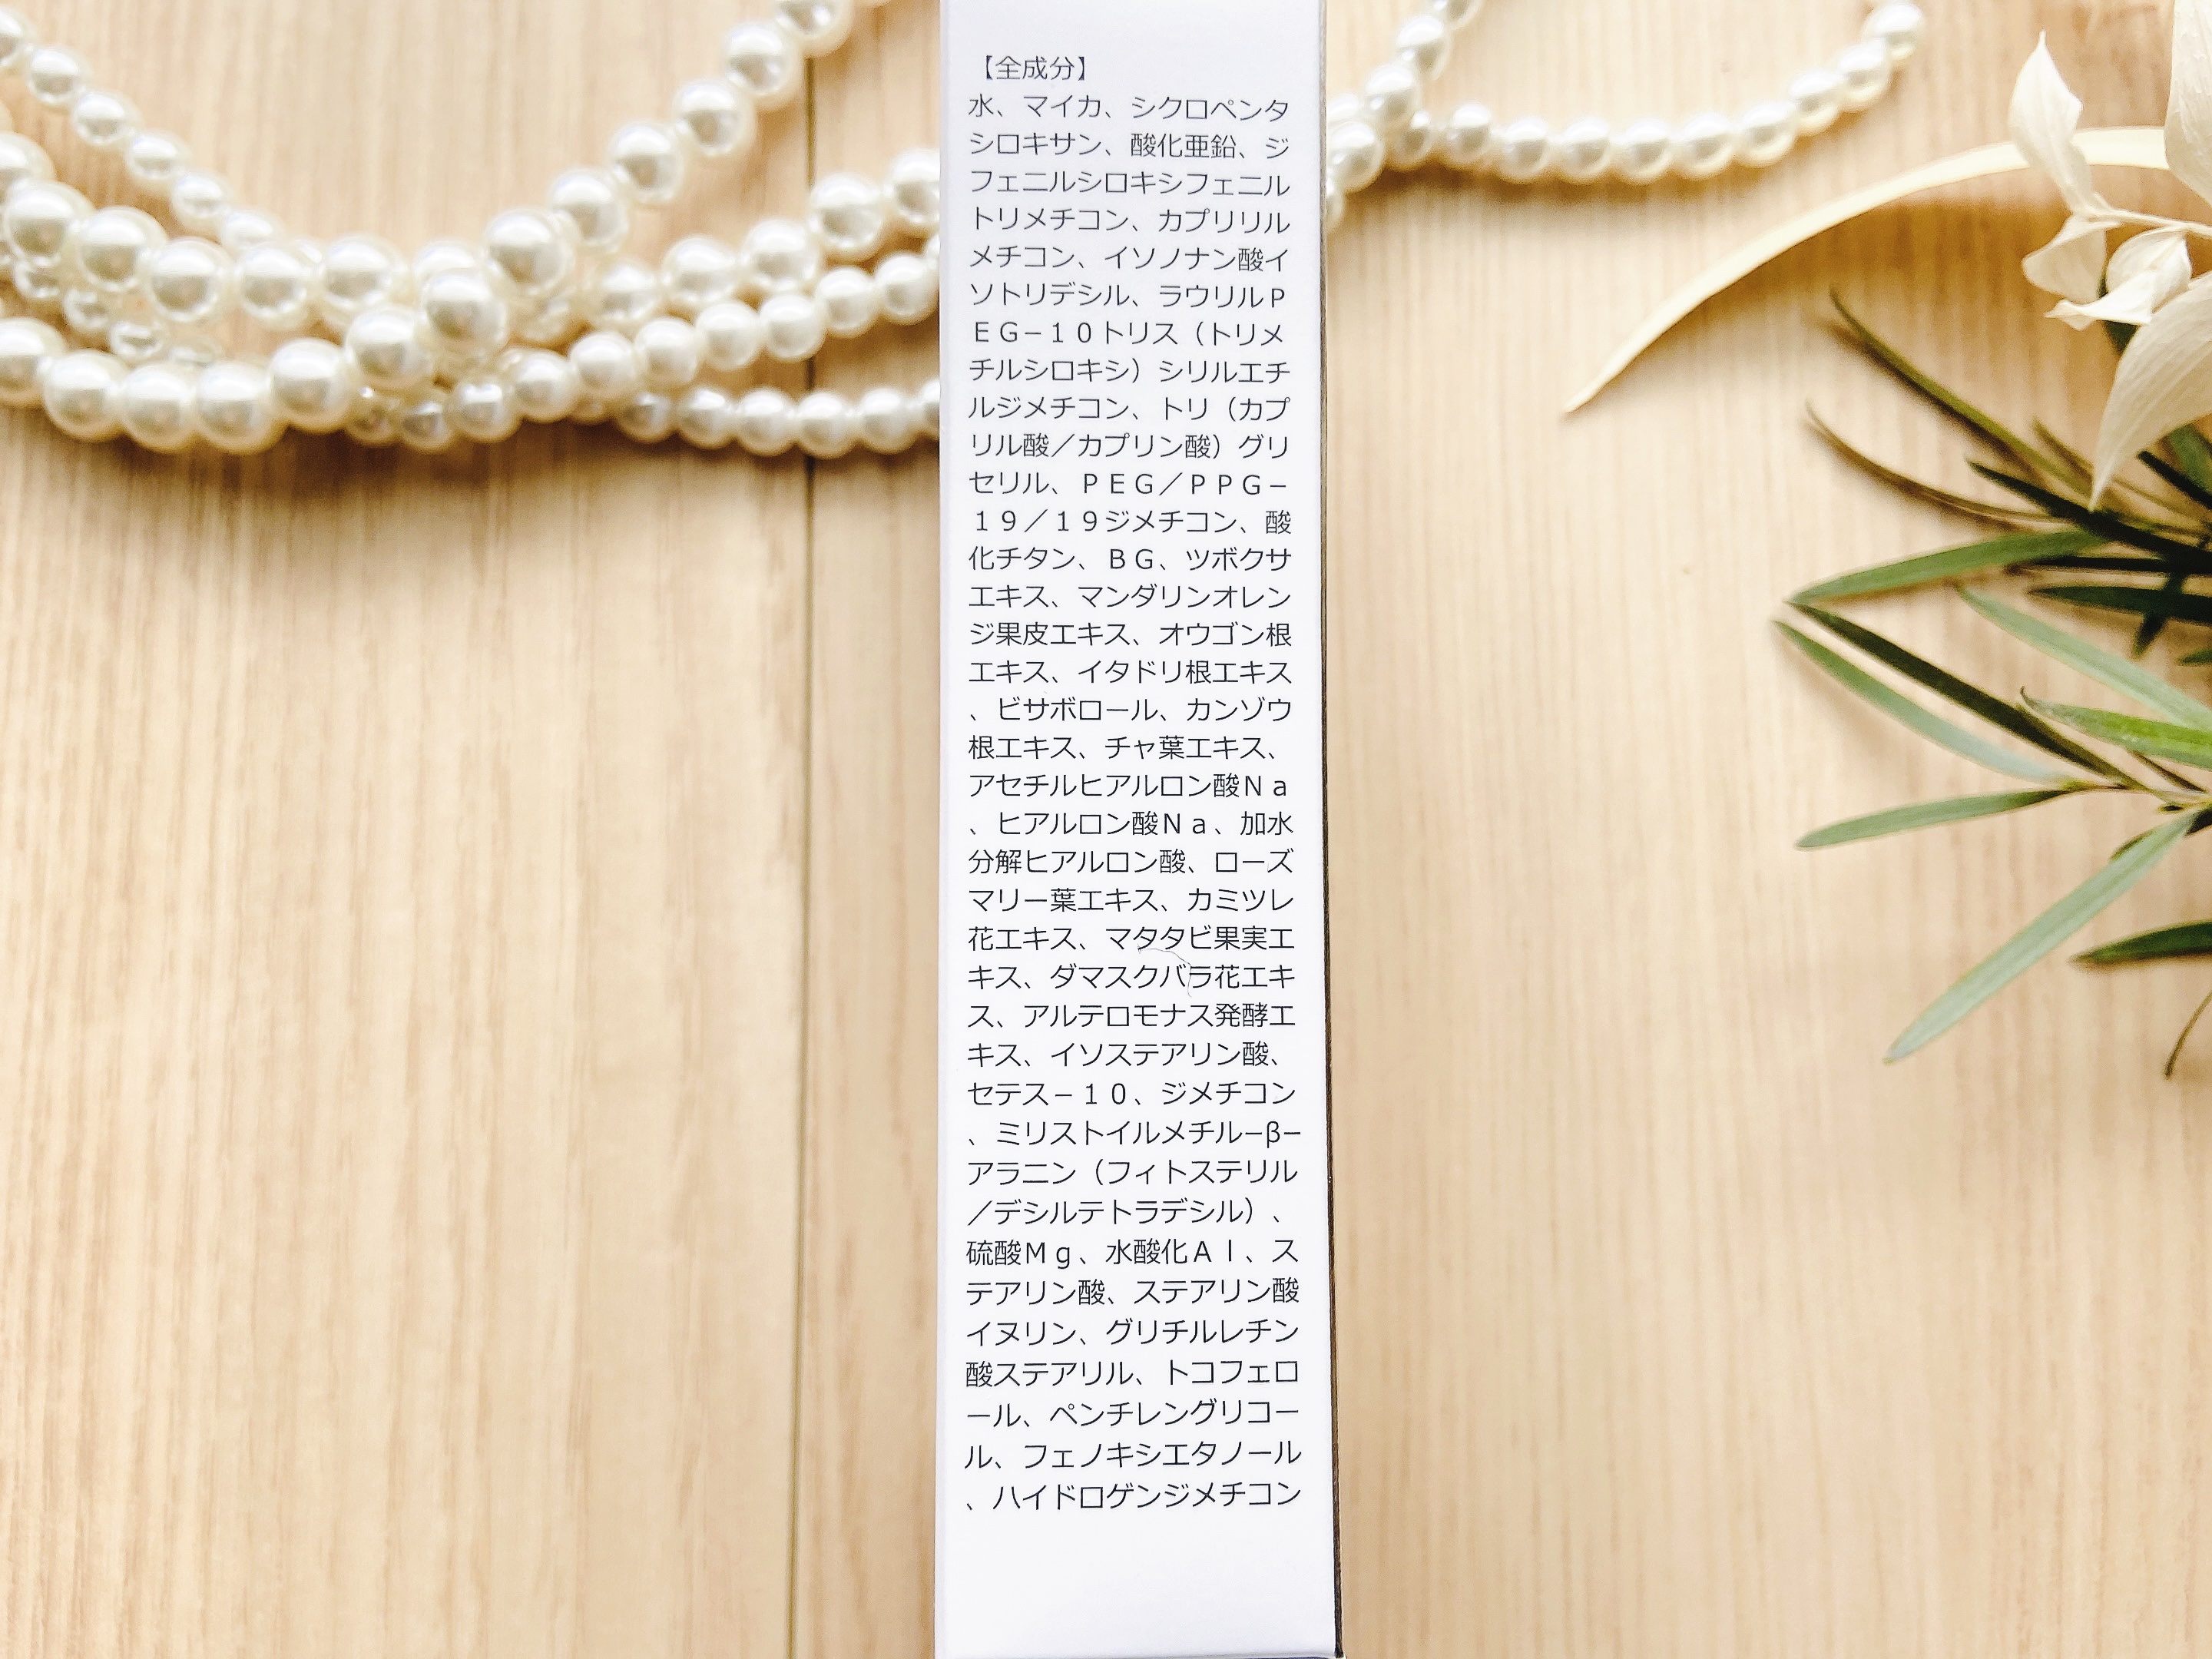 【全成分】
水、マイカ、シクロペンタ
シロキサン、酸化亜鉛、ジ
フェニルシロキシフェニル
トリメチコン、カプリリル
メチコン、イソノナン酸イ
ソトリデシル、ラウリルＰ
ＥＧ−１０トリス（トリメ
チルシロキシ）シリルエチ
ルジメチコン、トリ（カプ
リル酸／カプリン酸）グリ
セリル、ＰＥＧ／ＰＰＧ−
１９／１９ジメチコン、酸
化チタン、ＢＧ、ツボクサ
エキス、マンダリンオレン
ジ果皮エキス、オウゴン根
エキス、イタドリ根エキス
、ビサボロール、カンゾウ
根エキス、チャ葉エキス、
アセチルヒアルロン酸Ｎａ
、ヒアルロン酸Ｎａ、加水
分解ヒアルロン酸、ローズ
マリー葉エキス、カミツレ
花エキス、マタタビ果実エ
キス、ダマスクバラ花エキ
ス、アルテロモナス発酵エ
キス、イソステアリン酸、
セテス−１０、ジメチコン
、ミリストイルメチル−β−
アラニン（フィトステリル
／デシルテトラデシル）、
硫酸Ｍｇ、水酸化Ａｌ、ス
テアリン酸、ステアリン酸
イヌリン、グリチルレチン
酸ステアリル、トコフェロ
ール、ペンチレングリコー
ル、フェノキシエタノール
、ハイドロゲンジメチコン